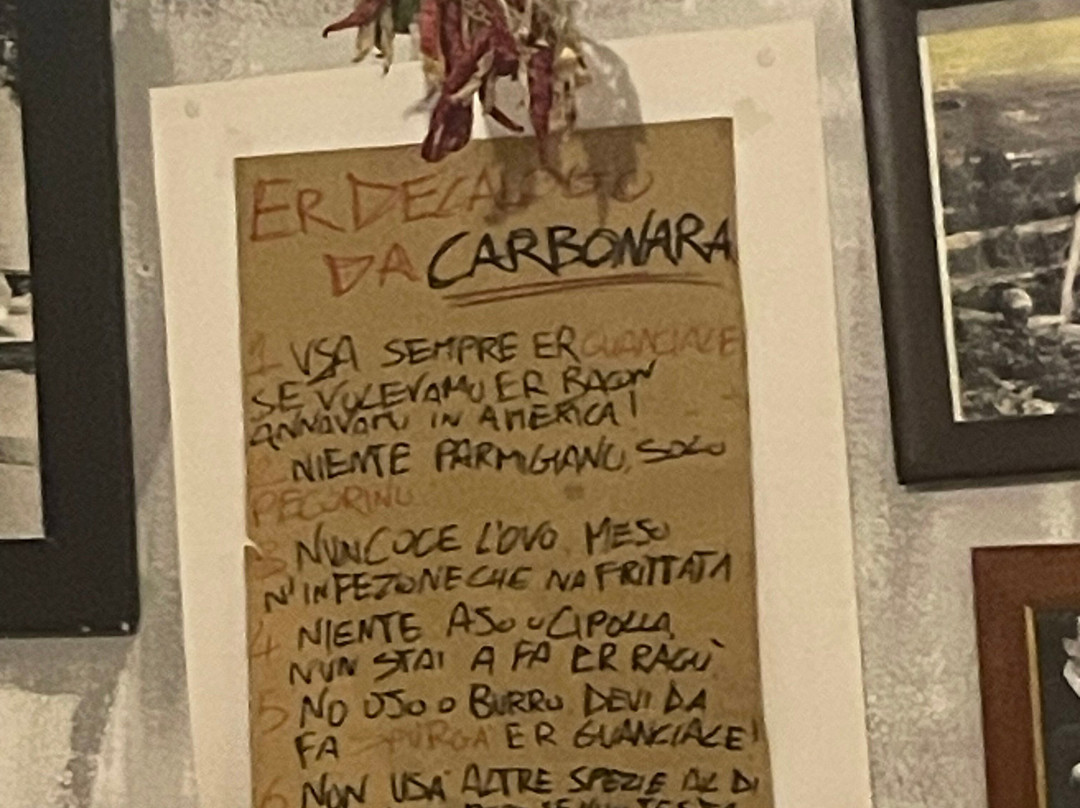 ER DECALOGO
DA CARBONARA
1 USA SEMPRE ER GUANCIALE
SE VOLEVAMO ER BACON
ANNAVAMO IN AMERICA!
2 NIENTE PARMIGIANO, SOLO
PECORINO
3 NUN COCE L'OVO, MEJO
N'INFEZIONE CHE NA FRITTATA
4 NIENTE AJO O CIPOLLA,
NUN STAI A FA ER RAGÙ
5 NO OJO O BURRO DEVI DA
FA SPURGA ER GUANCIALE!
6 NON USA ALTRE SPEZIE AL DI